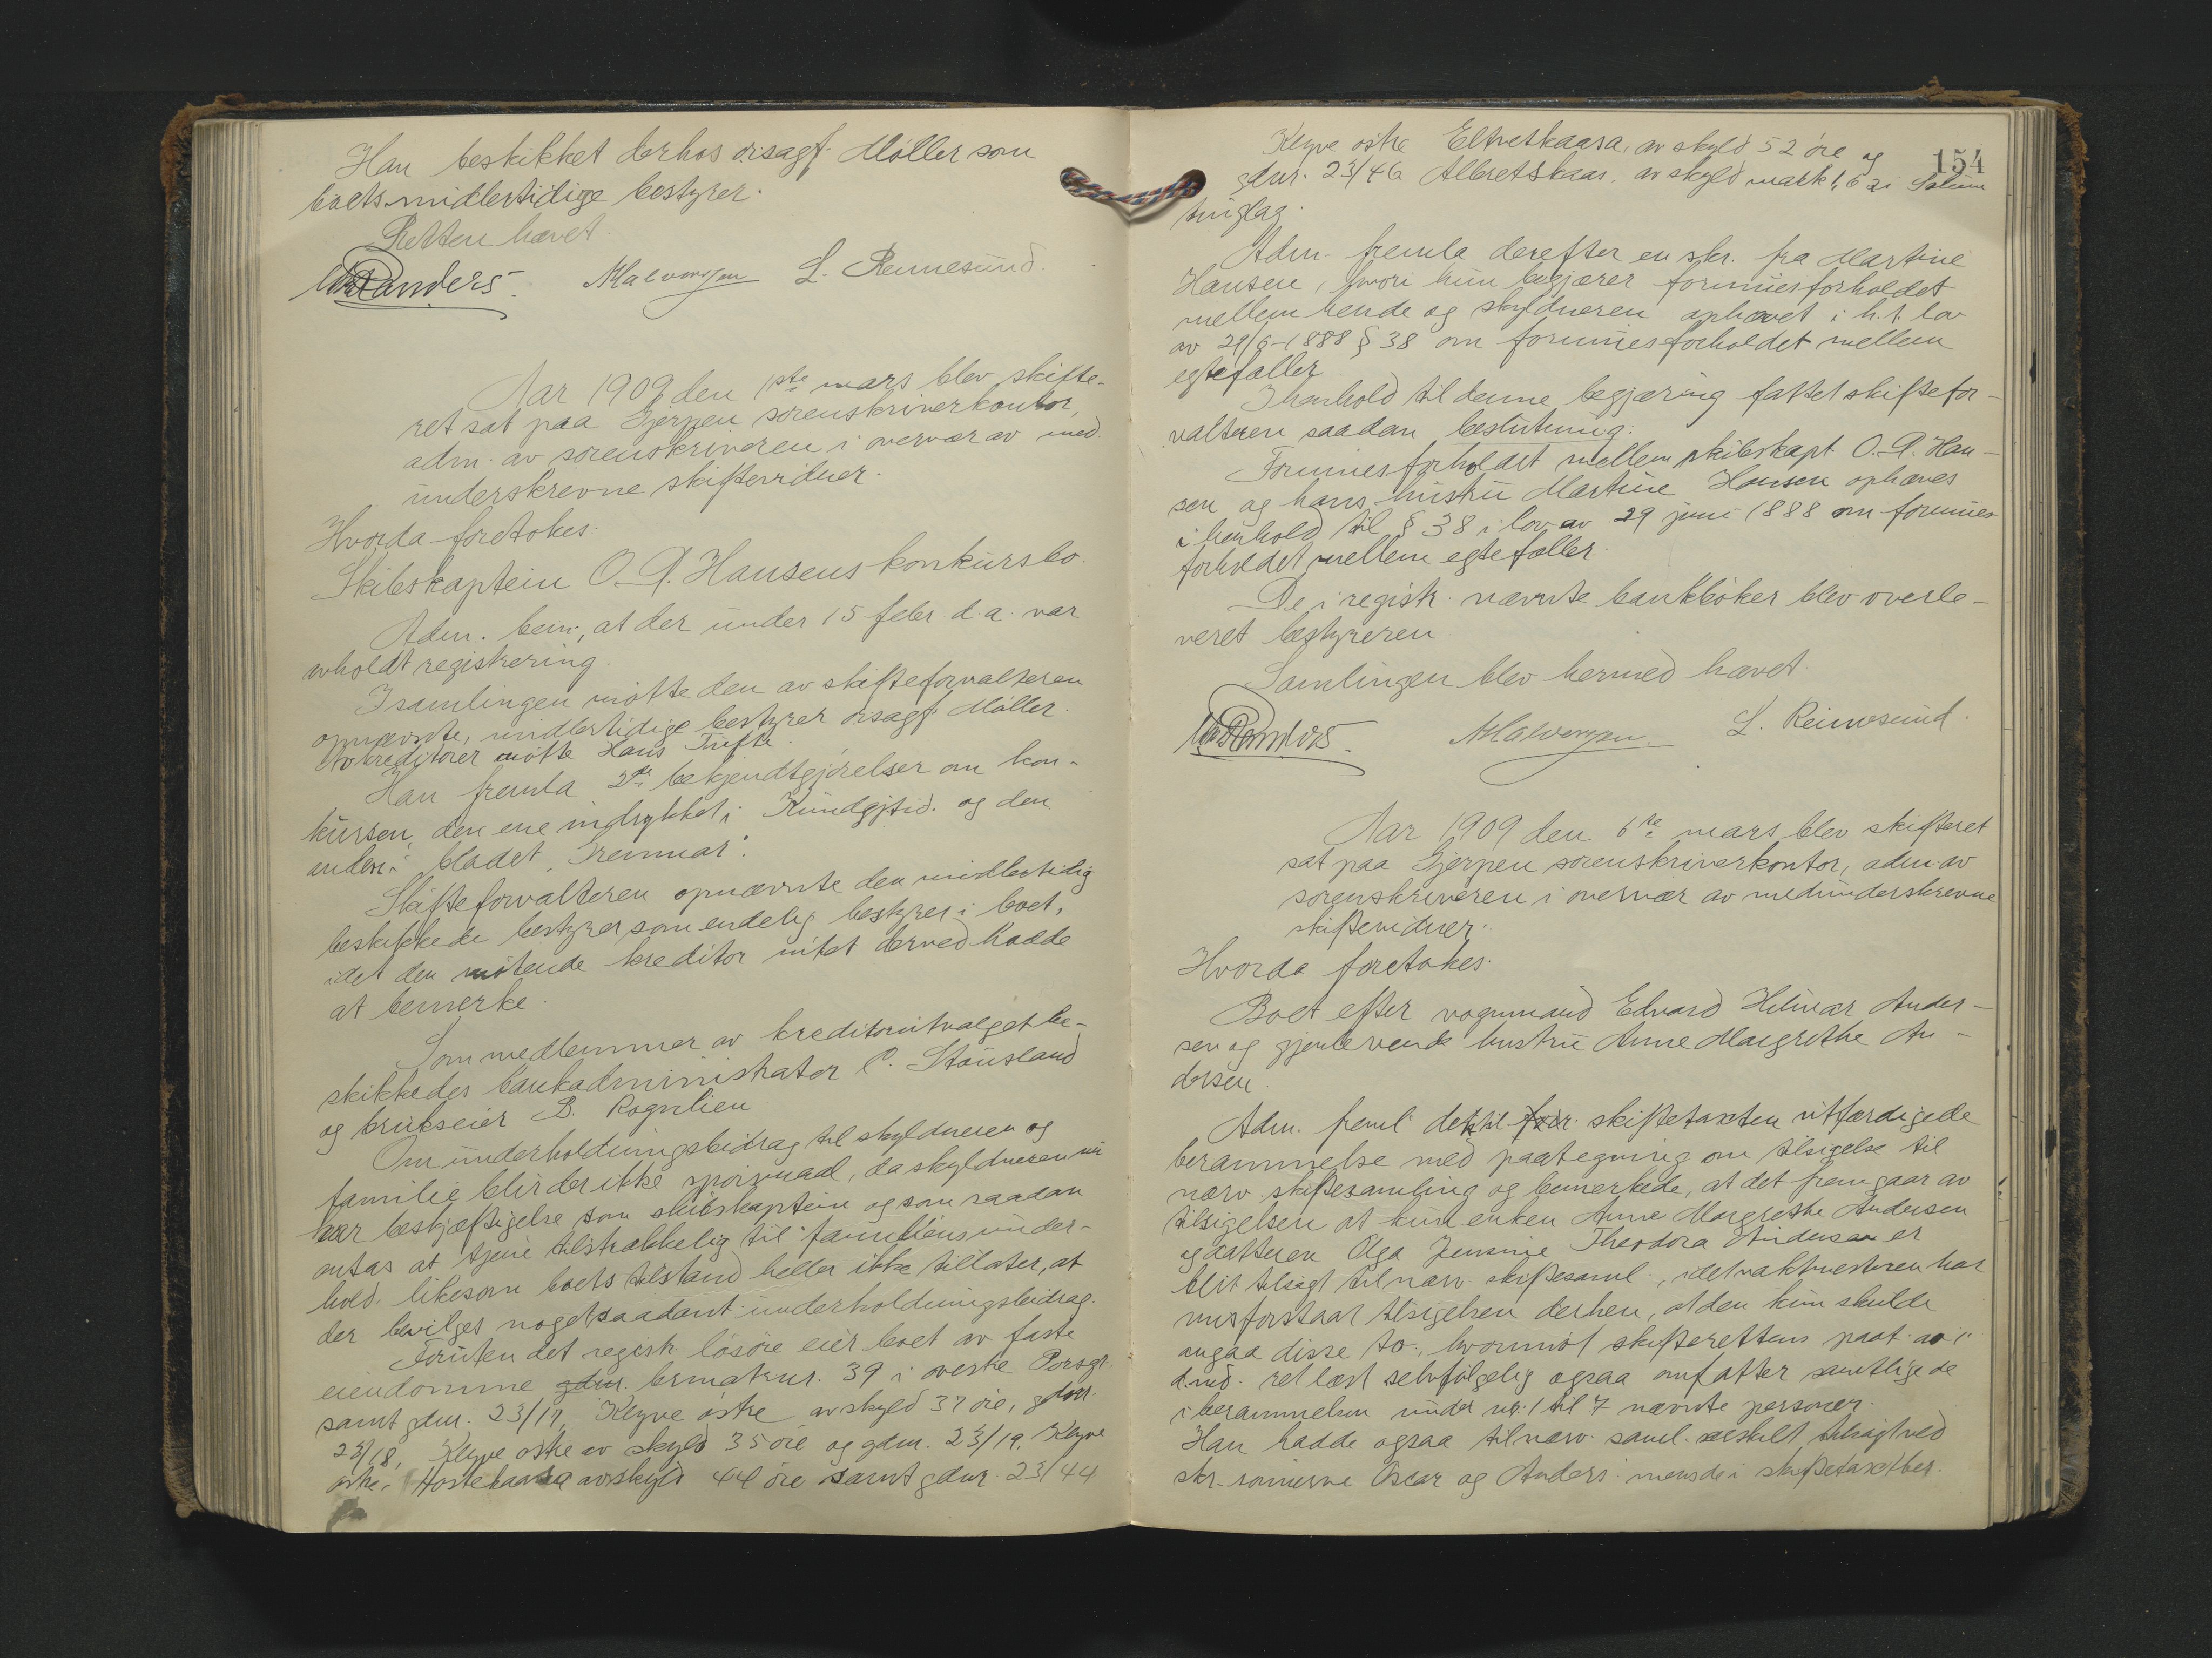 Han beskikket derhos orsagf. Möller som
boets midlertidige bestyrer.
Retten hævet.
Randers. AHalvorsen L. Reimesund.
Aar 1909 den 1ste mars blev skifte-
ret sat paa Gjerpen sorenskriverkontor,
adm. av sorenskriveren i overvær av med-
underskrevne skiftevidner.
Hvorda foretokes:
Skibskaptein O. A. Hansens konkursbo.
Adm. bem., at der under 15 febr. d.a. var
avholdt registrering.
I samlingen mötte den av skifteforvalteren
opnævnte, midlertidige bestyrer orsagf. Möller.
Av kreditorer mötte Hans Tufte.
Han fremla 2de bekjendtgjörelser om kon-
kursen, den ene indrykket i Kundgjtid. og den
anden i bladet "Grenmar".
Skifteforvalteren opnævnte den midlertidig
beskikkede bestyrer som endelig bestyrer i boet,
idet den mötende kreditor intet derved hadde
at bemerke.
Som medlemmer av kreditorutvalget be-
skikkedes bankadministrator C. Stousland
og brukseier B. Rognlien.
Om underholdningsbidrag til skyldneren og
familie blir der ikke spörsmaal, da skyldneren nu
har beskjæftigelse som skibskaptein og som saadan
antas at tjene tilstrækkelig til familiens under-
hold, likesom boets tilstand heller ikke tillater, at
der bevilges noget saadant underholdningsbidrag.
Foruten det registr. lösöre eier boet av faste
eiendomme gdnr. bymatrnr. 39 i övestre Porsgr.
samt gdnr. 23/17, Klyve östre av skyld 37 öre, gdnr.
23/18, Klyve östre av skyld 35 öre og gdnr. 23/19, Klyve
östre, av skyld 44 öre samt gdnr. 23/44
154
Klyve östre av skyld 52 öre og
gdnr. 23/46 Albretskaas, av skyld mark 1,62 i Solum
tinglag.
Adm. fremla derefter en skr. fra Martine
Hansen, hvori hun begjærer formuesforholdet
mellem hende og skyldneren ophævet i h.t. lov
av 29/6-1888 § 38 om formuesforholdet mellem
egtefæller.
I henhold til denne begjæring fattet skiftefor-
valteren saadan beslutning:
Formuesforholdet mellem skibskapt. O. A. Han-
sen og hans hustru Martine Hansen ophæves
i henhold til § 38 i lov av 29 juni 1888 om formues-
forholdet mellem egtefæller.
De i registr. nævnte bankböker blev overle-
veret bestyreren.
Samlingen blev hermed hævet.
Randers. AHalvorsen. L. Reimesund.
Aar 1909 den 6te mars blev skifteret
sat paa Gjerpen sorenskriverkontor, adm. av
sorenskriveren i overvær av medunderskrevne
skiftevidner.
Hvorda foretokes:
Boet efter vognmand Edvard Hilmar Ander-
sen og gjenlevende hustru Anne Margrethe An-
dersen.
Adm. freml. den til skiftetaxten utfærdigede
berammelse med paategning om tilsigelse til
nærv. skiftesamling og bemerkede, at det fremgaar av
tilsigelsen at kun enken Anne Margrethe Andersen
og datteren Olga Jensine Theodora Andersen er
blit tilsagt til nærv. skiftesaml., idet vaktmesteren har
misforstaat tilsigelsen derhen, at den kun skulde
angaa disse to, hvorimot skifterettens paat. av
d.md. ret læst selvfölgelig ogsaa omfatter samtlige de
i berammelsen under nr. 1 til 7 nævnte personer.
Han hadde ogsaa til nærv. saml. særskilt tilsagt ved
skr. sönnerne Oscar og Anders mens de i skiftetaxtber.